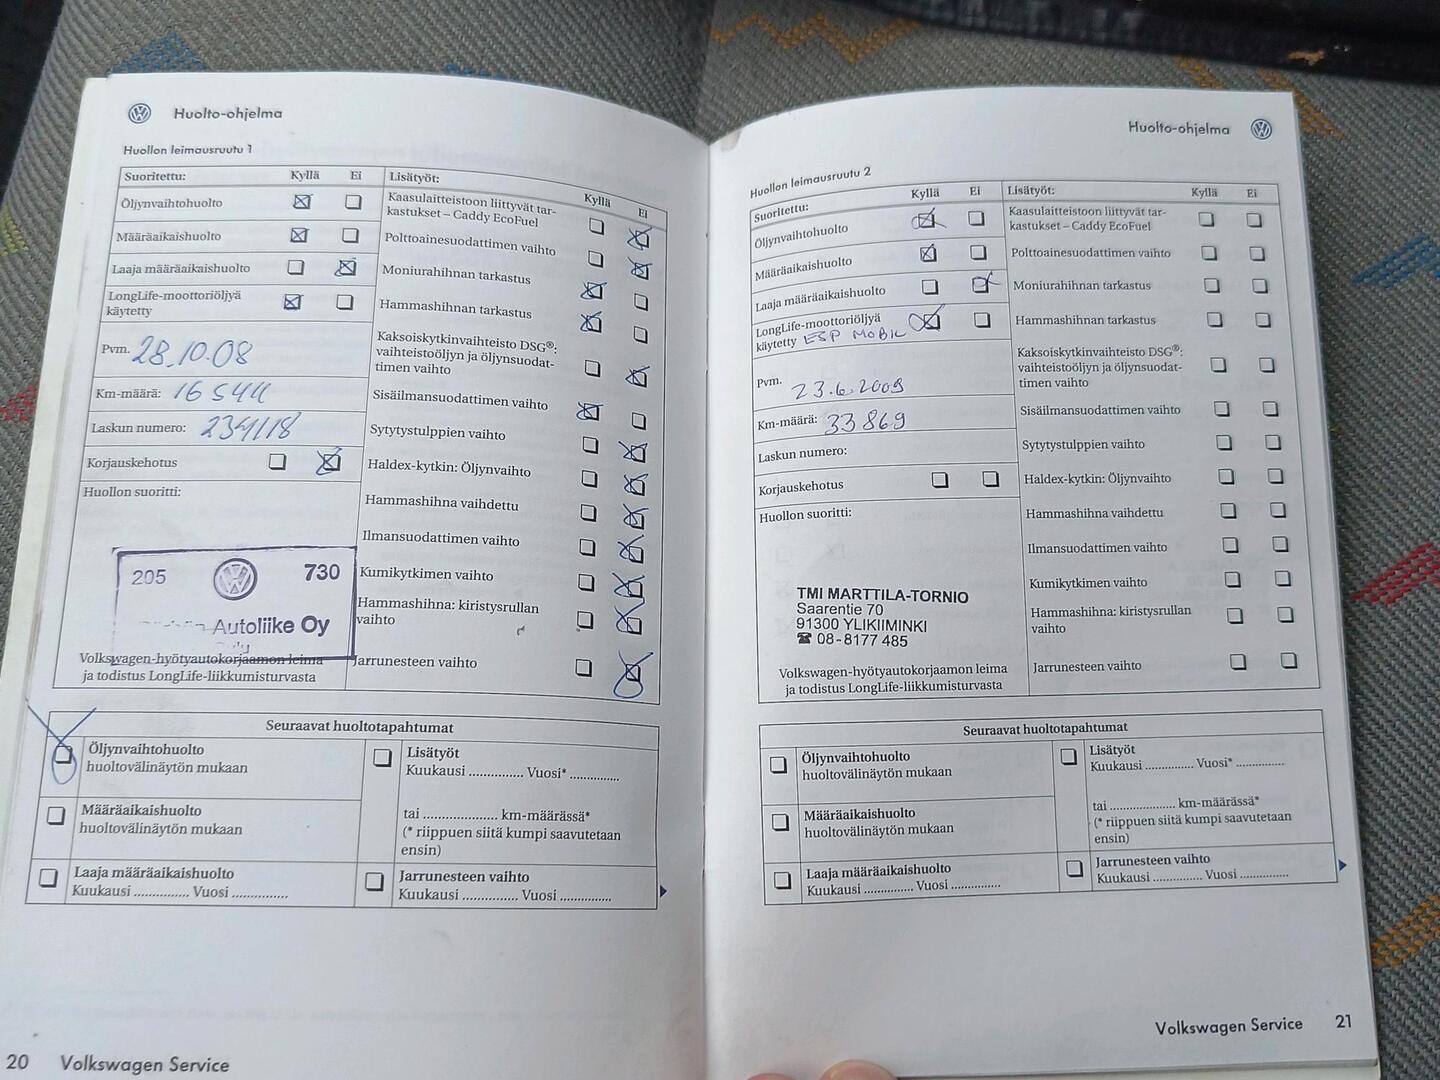 Huolto-ohjelma
Huollon leimausruutu 1
Suoritettu: Kyllä Ei
Öljynvaihtohuolto
Määräaikaishuolto
Laaja määräaikaishuolto
LongLife-moottoriöljyä
käytetty
Pvm. 28.10.08
Km-määrä: 16544
Laskun numero: 234118
Korjauskehotus
Huollon suoritti:
205 730
Autoliike Oy
Volkswagen-hyötyautokorjaamon leima
ja todistus LongLife-liikkumisturvasta
Lisätyöt: Kyllä Ei
Kaasulaitteistoon liittyvät tar-
kastukset – Caddy EcoFuel
Polttoainesuodattimen vaihto
Moniurahihnan tarkastus
Hammashihnan tarkastus
Kaksoiskytkinvaihteisto DSG®:
vaihteistoöljyn ja öljynsuodat-
timen vaihto
Sisäilmansuodattimen vaihto
Sytytystulppien vaihto
Haldex-kytkin: Öljynvaihto
Hammashihna vaihdettu
Ilmansuodattimen vaihto
Kumikytkimen vaihto
Hammashihna: kiristysrullan
vaihto
Jarrunesteen vaihto
Seuraavat huoltotapahtumat
Öljynvaihtohuolto
huoltovälinäytön mukaan
Määräaikaishuolto
huoltovälinäytön mukaan
Laaja määräaikaishuolto
Kuukausi .............. Vuosi ..............
Lisätyöt
Kuukausi .............. Vuosi* ..............
tai .................... km-määrässä*
(* riippuen siitä kumpi saavutetaan
ensin)
Jarrunesteen vaihto
Kuukausi .............. Vuosi ..............
20 Volkswagen Service
Huolto-ohjelma
Huollon leimausruutu 2
Suoritettu: Kyllä Ei
Öljynvaihtohuolto
Määräaikaishuolto
Laaja määräaikaishuolto
LongLife-moottoriöljyä
käytetty ESP MOBIL
Pvm. 23.6.2009
Km-määrä: 33869
Laskun numero:
Korjauskehotus
Huollon suoritti:
TMI MARTTILA-TORNIO
Saarentie 70
91300 YLIKIIMINKI
☎ 08-8177 485
Volkswagen-hyötyautokorjaamon leima
ja todistus LongLife-liikkumisturvasta
Lisätyöt: Kyllä Ei
Kaasulaitteistoon liittyvät tar-
kastukset – Caddy EcoFuel
Polttoainesuodattimen vaihto
Moniurahihnan tarkastus
Hammashihnan tarkastus
Kaksoiskytkinvaihteisto DSG®:
vaihteistoöljyn ja öljynsuodat-
timen vaihto
Sisäilmansuodattimen vaihto
Sytytystulppien vaihto
Haldex-kytkin: Öljynvaihto
Hammashihna vaihdettu
Ilmansuodattimen vaihto
Kumikytkimen vaihto
Hammashihna: kiristysrullan
vaihto
Jarrunesteen vaihto
Seuraavat huoltotapahtumat
Öljynvaihtohuolto
huoltovälinäytön mukaan
Määräaikaishuolto
huoltovälinäytön mukaan
Laaja määräaikaishuolto
Kuukausi .............. Vuosi ..............
Lisätyöt
Kuukausi .............. Vuosi* ..............
tai .................... km-määrässä*
(* riippuen siitä kumpi saavutetaan
ensin)
Jarrunesteen vaihto
Kuukausi .............. Vuosi ..............
Volkswagen Service 21